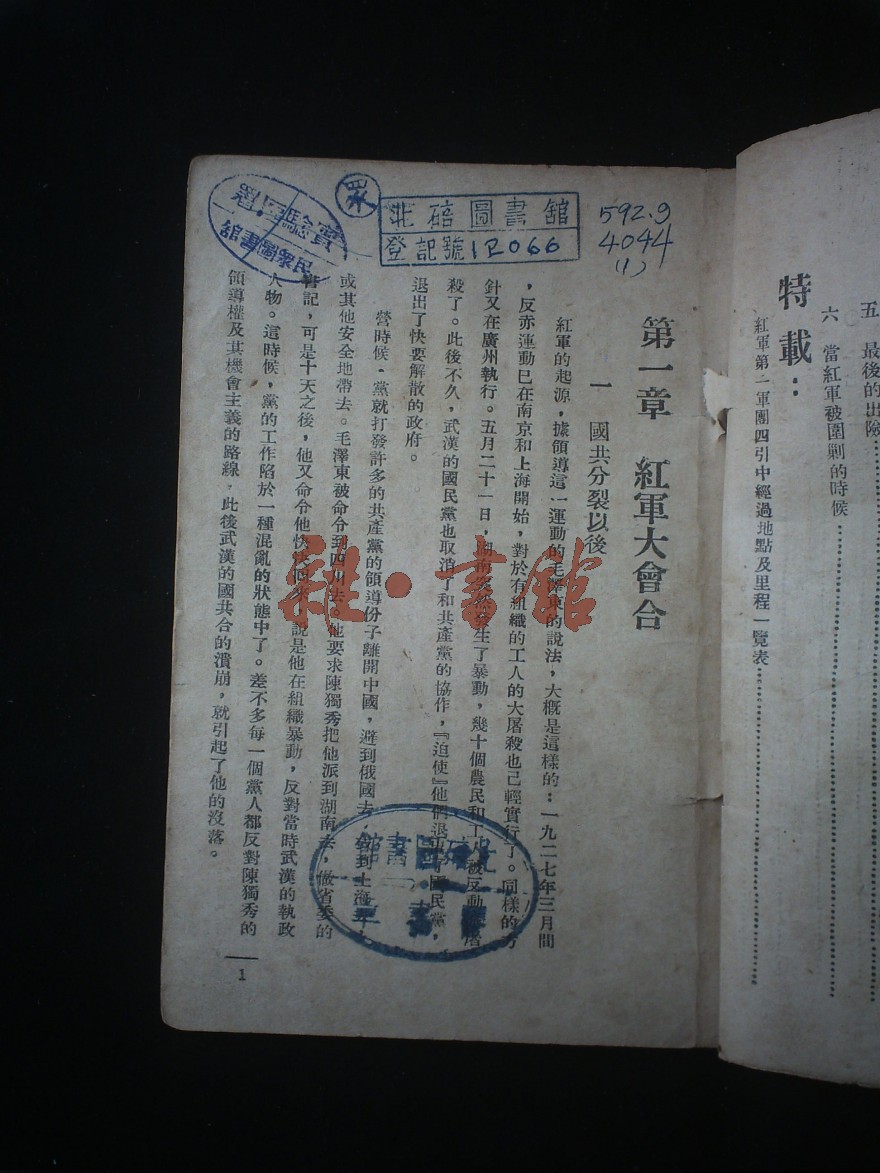 五　最後的出險
六　當紅軍被圍剿的時候
特載：
紅軍第二軍團四引中經過地點及里程一覽表
實驗區署
民眾圖書館
眾
北碚圖書館
登記號12066
592.9
4044
(1)
第一章　紅軍大會合
一　國共分裂以後
紅軍的起源，據領導這一運動的毛澤東的說法，大概是這樣的：一九二七年三月間
，反赤運動已在南京和上海開始，對於有組織的工人的大屠殺也已輕實行了。同樣的方
針又在廣州執行。五月二十一日，湖南突然發生了暴動，幾十個農民和工人被反動派屠
殺了。此後不久，武漢的國民黨也取消了和共產黨的協作，『迫使』他們退出了國民黨，
退出了快要解散的政府。
營時候，黨就打發許多的共產黨的領導份子離開中國，避到俄國去，或到上海去，
或其他安全地帶去。毛澤東被命令到四川去。他要求陳獨秀把他派到湖南去，做省委的
書記，可是十天之後，他又命令他快快回來，說是他在組織暴動，反對當時武漢的執政
人物。這時候，黨的工作陷於一種混亂的狀態中了。差不多每一個黨人都反對陳獨秀的
領導權及其機會主義的路線，此後武漢的國共合的潰崩，就引起了他的沒落。
1
雜·書館